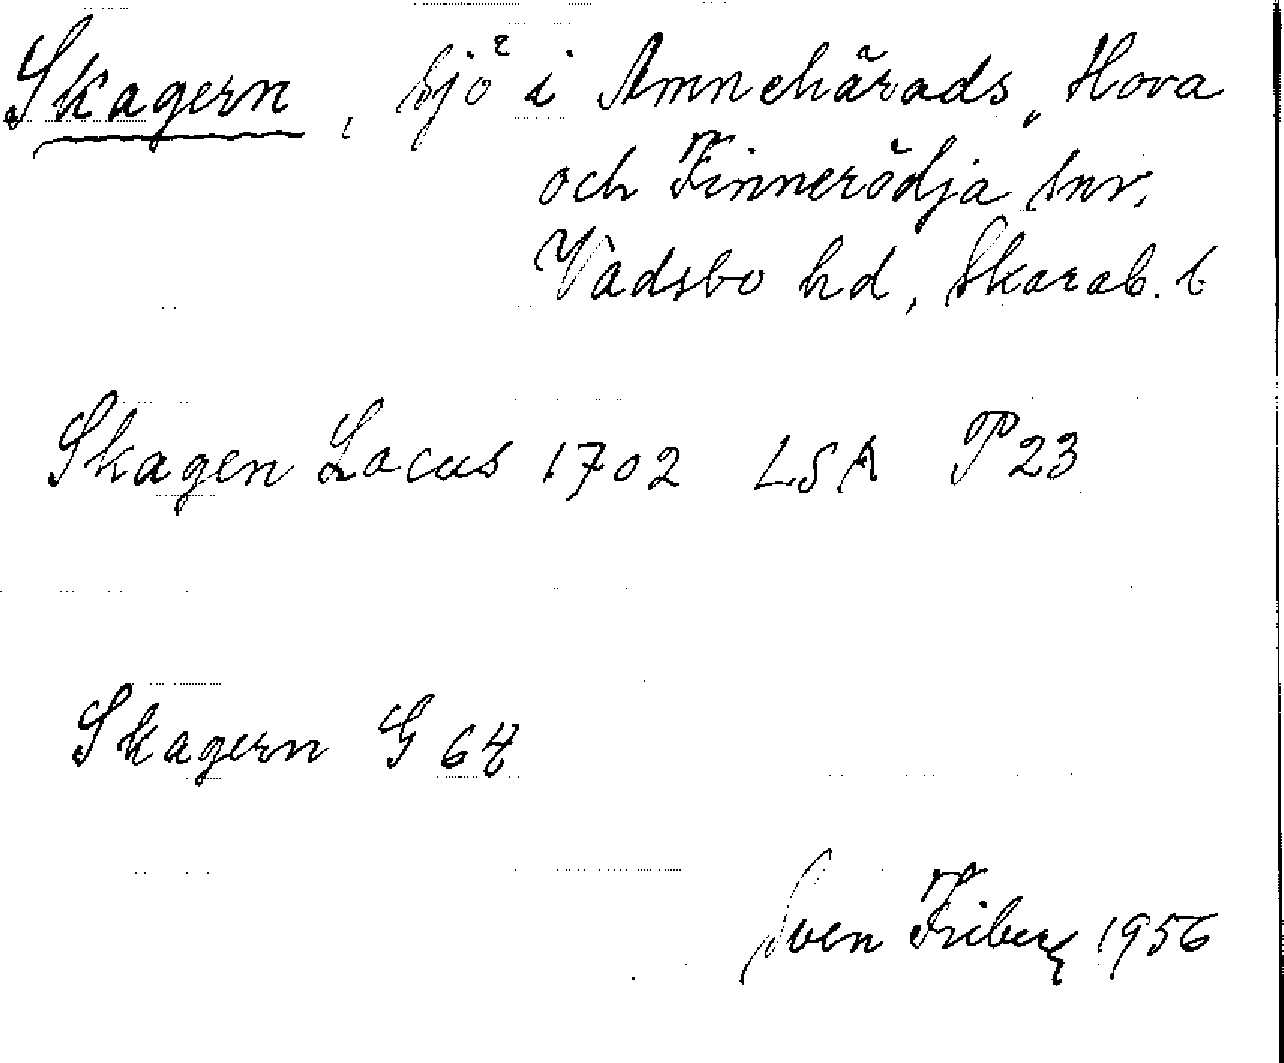 Skagern, sjö i Amnehärads, Hova
och Finnerödja snr,
Vadsbo hd, Skarab. l
Skagen Locus 1702 LSA P 23
Skagern G 64
Sven Friberg 1956